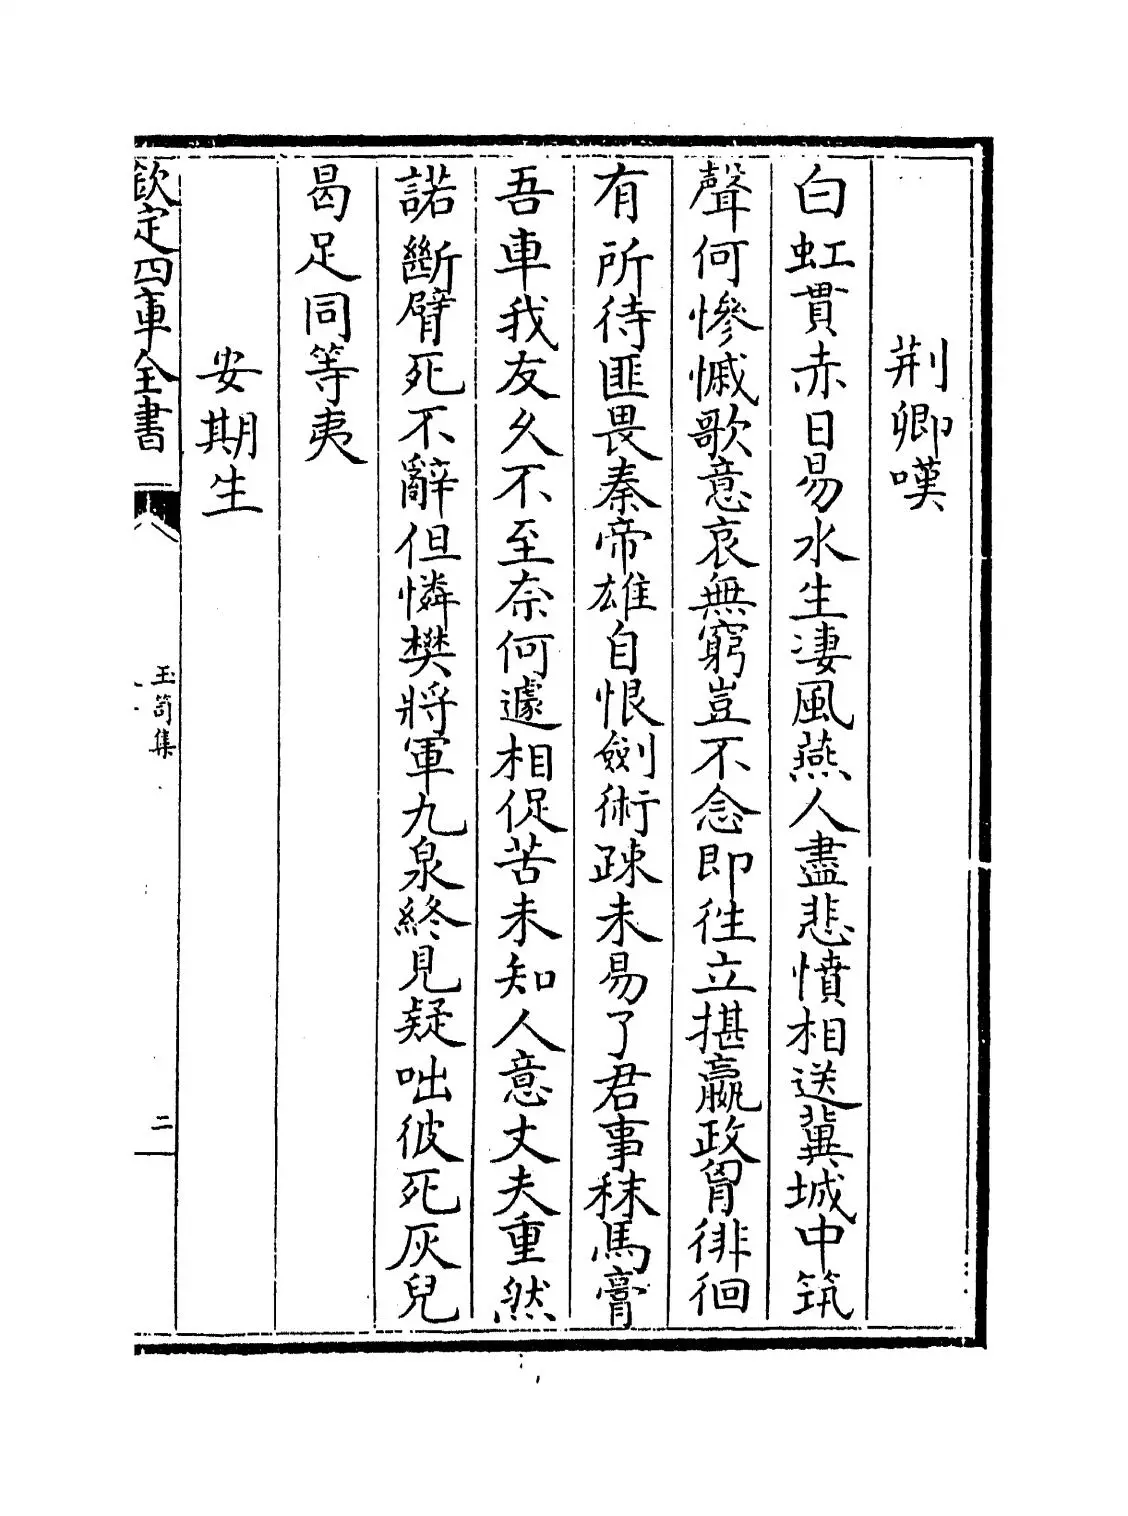 荆卿嘆
白虹貫赤日易水生凄風燕人盡悲憤相送冀城中筑
聲何慘慽歌意哀無窮豈不念即徃立揕嬴政胷徘徊
有所待匪畏秦帝雄自恨劒術疎未易了君事秣馬膏
吾車我友久不至奈何遽相促苦未知人意丈夫重然
諾斷臂死不辭但憐樊將軍九泉終見疑咄彼死灰兒
曷足同等夷
安期生
欽定四庫全書
玉笥集
二